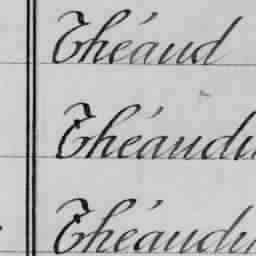 Théaud
Théaudi
Théaudi